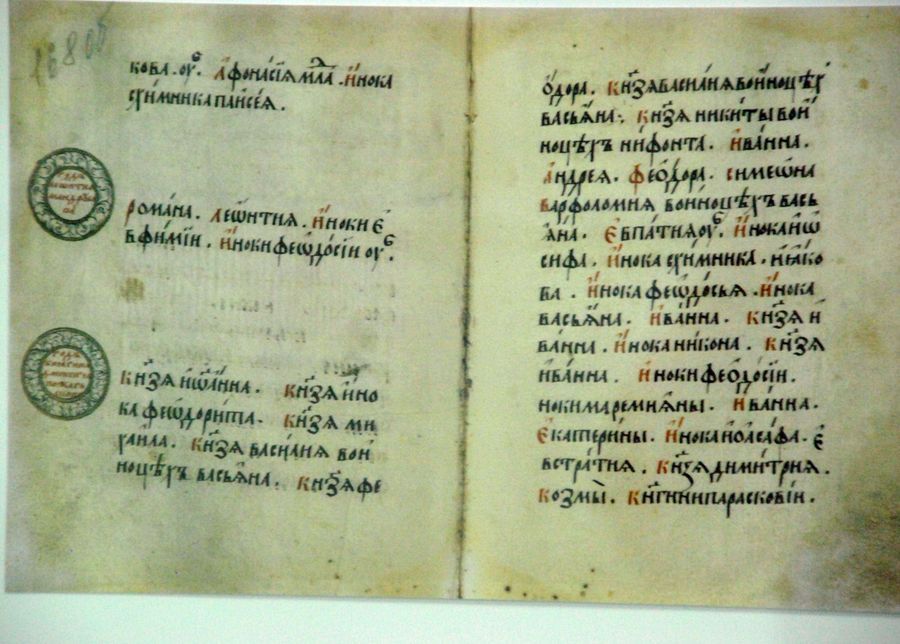 кова. ꙋ҆б. Аѳонасїѧ мл҃а. И҆нока
схи́мника паисеꙗ.
рома́на. леѡ҆нтиꙗ. И҆ноки є҆
вѳи́мїи. И҆ноки ѳеѡдо́сїи ꙋ҆б.
кн҃зѧ и҆ѡа́нна. кн҃зѧ и҆но
ка ѳеѡдори́та. кн҃зѧ ми
хаи́ла. кн҃зѧ васи́лиѧ вои҆
ноцѣ́хъ васьꙗ́на. кн҃зѧ ѳе
ѡ҆дора. кн҃зѧ васи́лиѧ вои҆ноцѣ́х
васьꙗ́на. кн҃зѧ ники́ты вои҆
ноцѣ́хъ ни́фонта. и҆ва́нна.
а҆ндреѧ. ѳеѡ́дора. симеѡ́на
варфоломиѧ вои҆ноцѣ́хъ вась
ꙗ́на. Е҆впа́тиѧ ꙋ҆б. и҆нока и҆ѡ
сифа. и҆нока схи́мника. и҆ꙗ́ко
ва. и҆нока ѳеѡдо́сьѧ. и҆нока
васьꙗ́на. и҆ва́нна. кн҃зѧ и҆
ва́нна. и҆нока ни́кона. кн҃зѧ
и҆ва́нна. и҆ноки ѳеѡдо́сїи.
ноки маремиꙗ́ны. и҆ва́нна.
Е҆катери́ны. и҆нока и҆оаса́фа. є҆
встра́тиѧ. кн҃зѧ дими́триѧ.
козмы̀. кн҃гини параско́вїи.